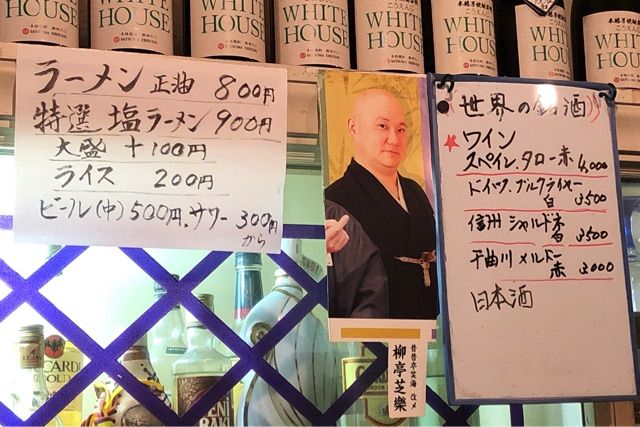 WHITE HOUSE
WHITE HOUSE
WHITE HOUSE
WHITE HOUSE
WHITE HOUSE
WHITE HOUSE
WHITE HOUSE
ラーメン 正油 800円
特選 塩ラーメン 900円
大盛 +100円
ライス 200円
ビール(中)500円、サワー 300円
から
世界の銘酒
★ワイン
スペイン、タロー赤 4,000
白 3500
信州 シャルドネ
白 3500
千曲川 メルロー
赤 3000
日本酒
昔昔亭笑海 改メ
柳亭芝樂